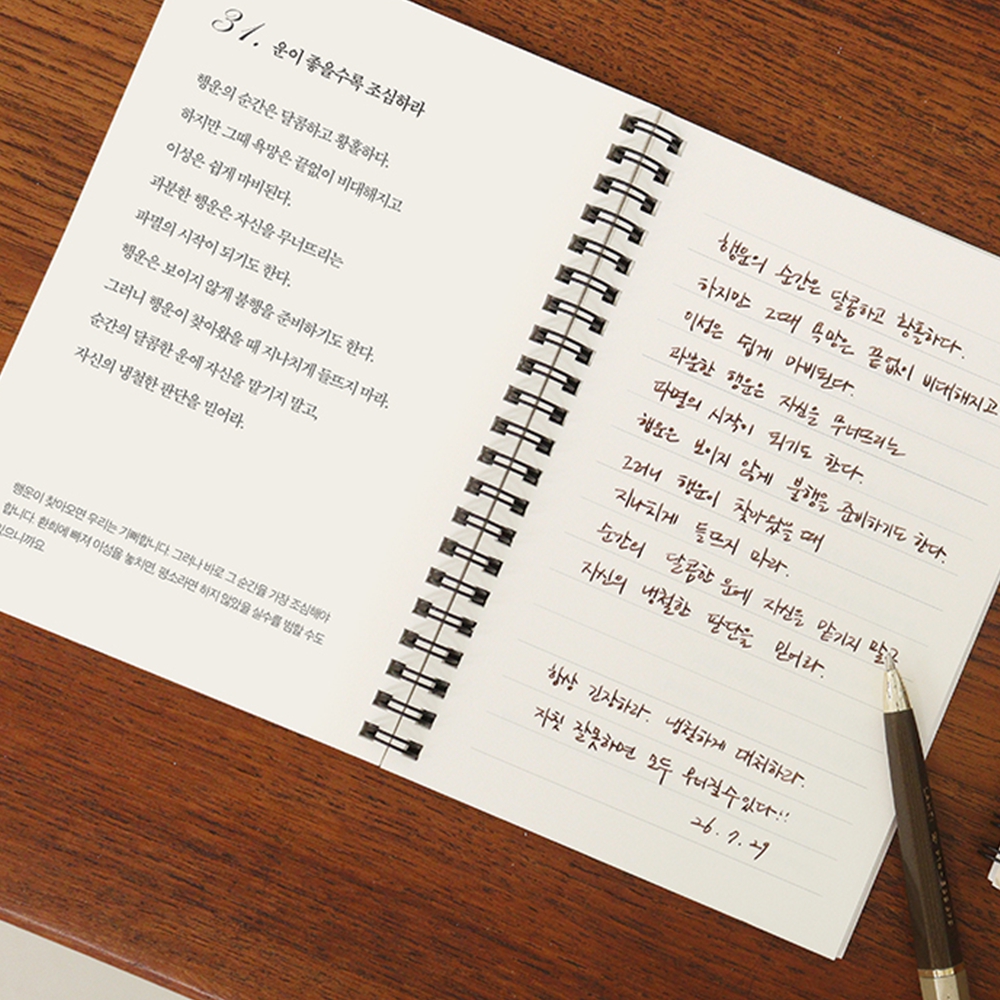 31. 운이 좋을수록 조심하라
행운의 순간은 달콤하고 황홀하다.
하지만 그때 욕망은 끝없이 비대해지고
이성은 쉽게 마비된다.
과분한 행운은 자신을 무너뜨리는
파멸의 시작이 되기도 한다.
행운은 보이지 않게 불행을 준비하기도 한다.
그러니 행운이 찾아왔을 때 지나치게 들뜨지 마라.
순간의 달콤한 운에 자신을 맡기지 말고,
자신의 냉철한 판단을 믿어라.
행운이 찾아오면 우리는 기뻐합니다. 그러나 바로 그 순간을 가장 조심해야
합니다. 환희에 빠져 이성을 놓치면, 평소라면 하지 않았을 실수를 범할 수도
있으니까요.
행운의 순간은 달콤하고 황홀하다.
하지만 그때 욕망은 끝없이 비대해지고
이성은 쉽게 마비된다.
과분한 행운은 자신을 무너뜨리는
파멸의 시작이 되기도 한다.
행운은 보이지 않게 불행을 준비하기도 한다.
그러니 행운이 찾아왔을 때
지나치게 들뜨지 마라.
순간의 달콤한 운에 자신을 맡기지 말고
자신의 냉철한 판단을 믿어라.
항상 긴장하라. 냉철하게 대처하라.
자칫 잘못하면 모두 무너질수있다!!
26. 7. 29